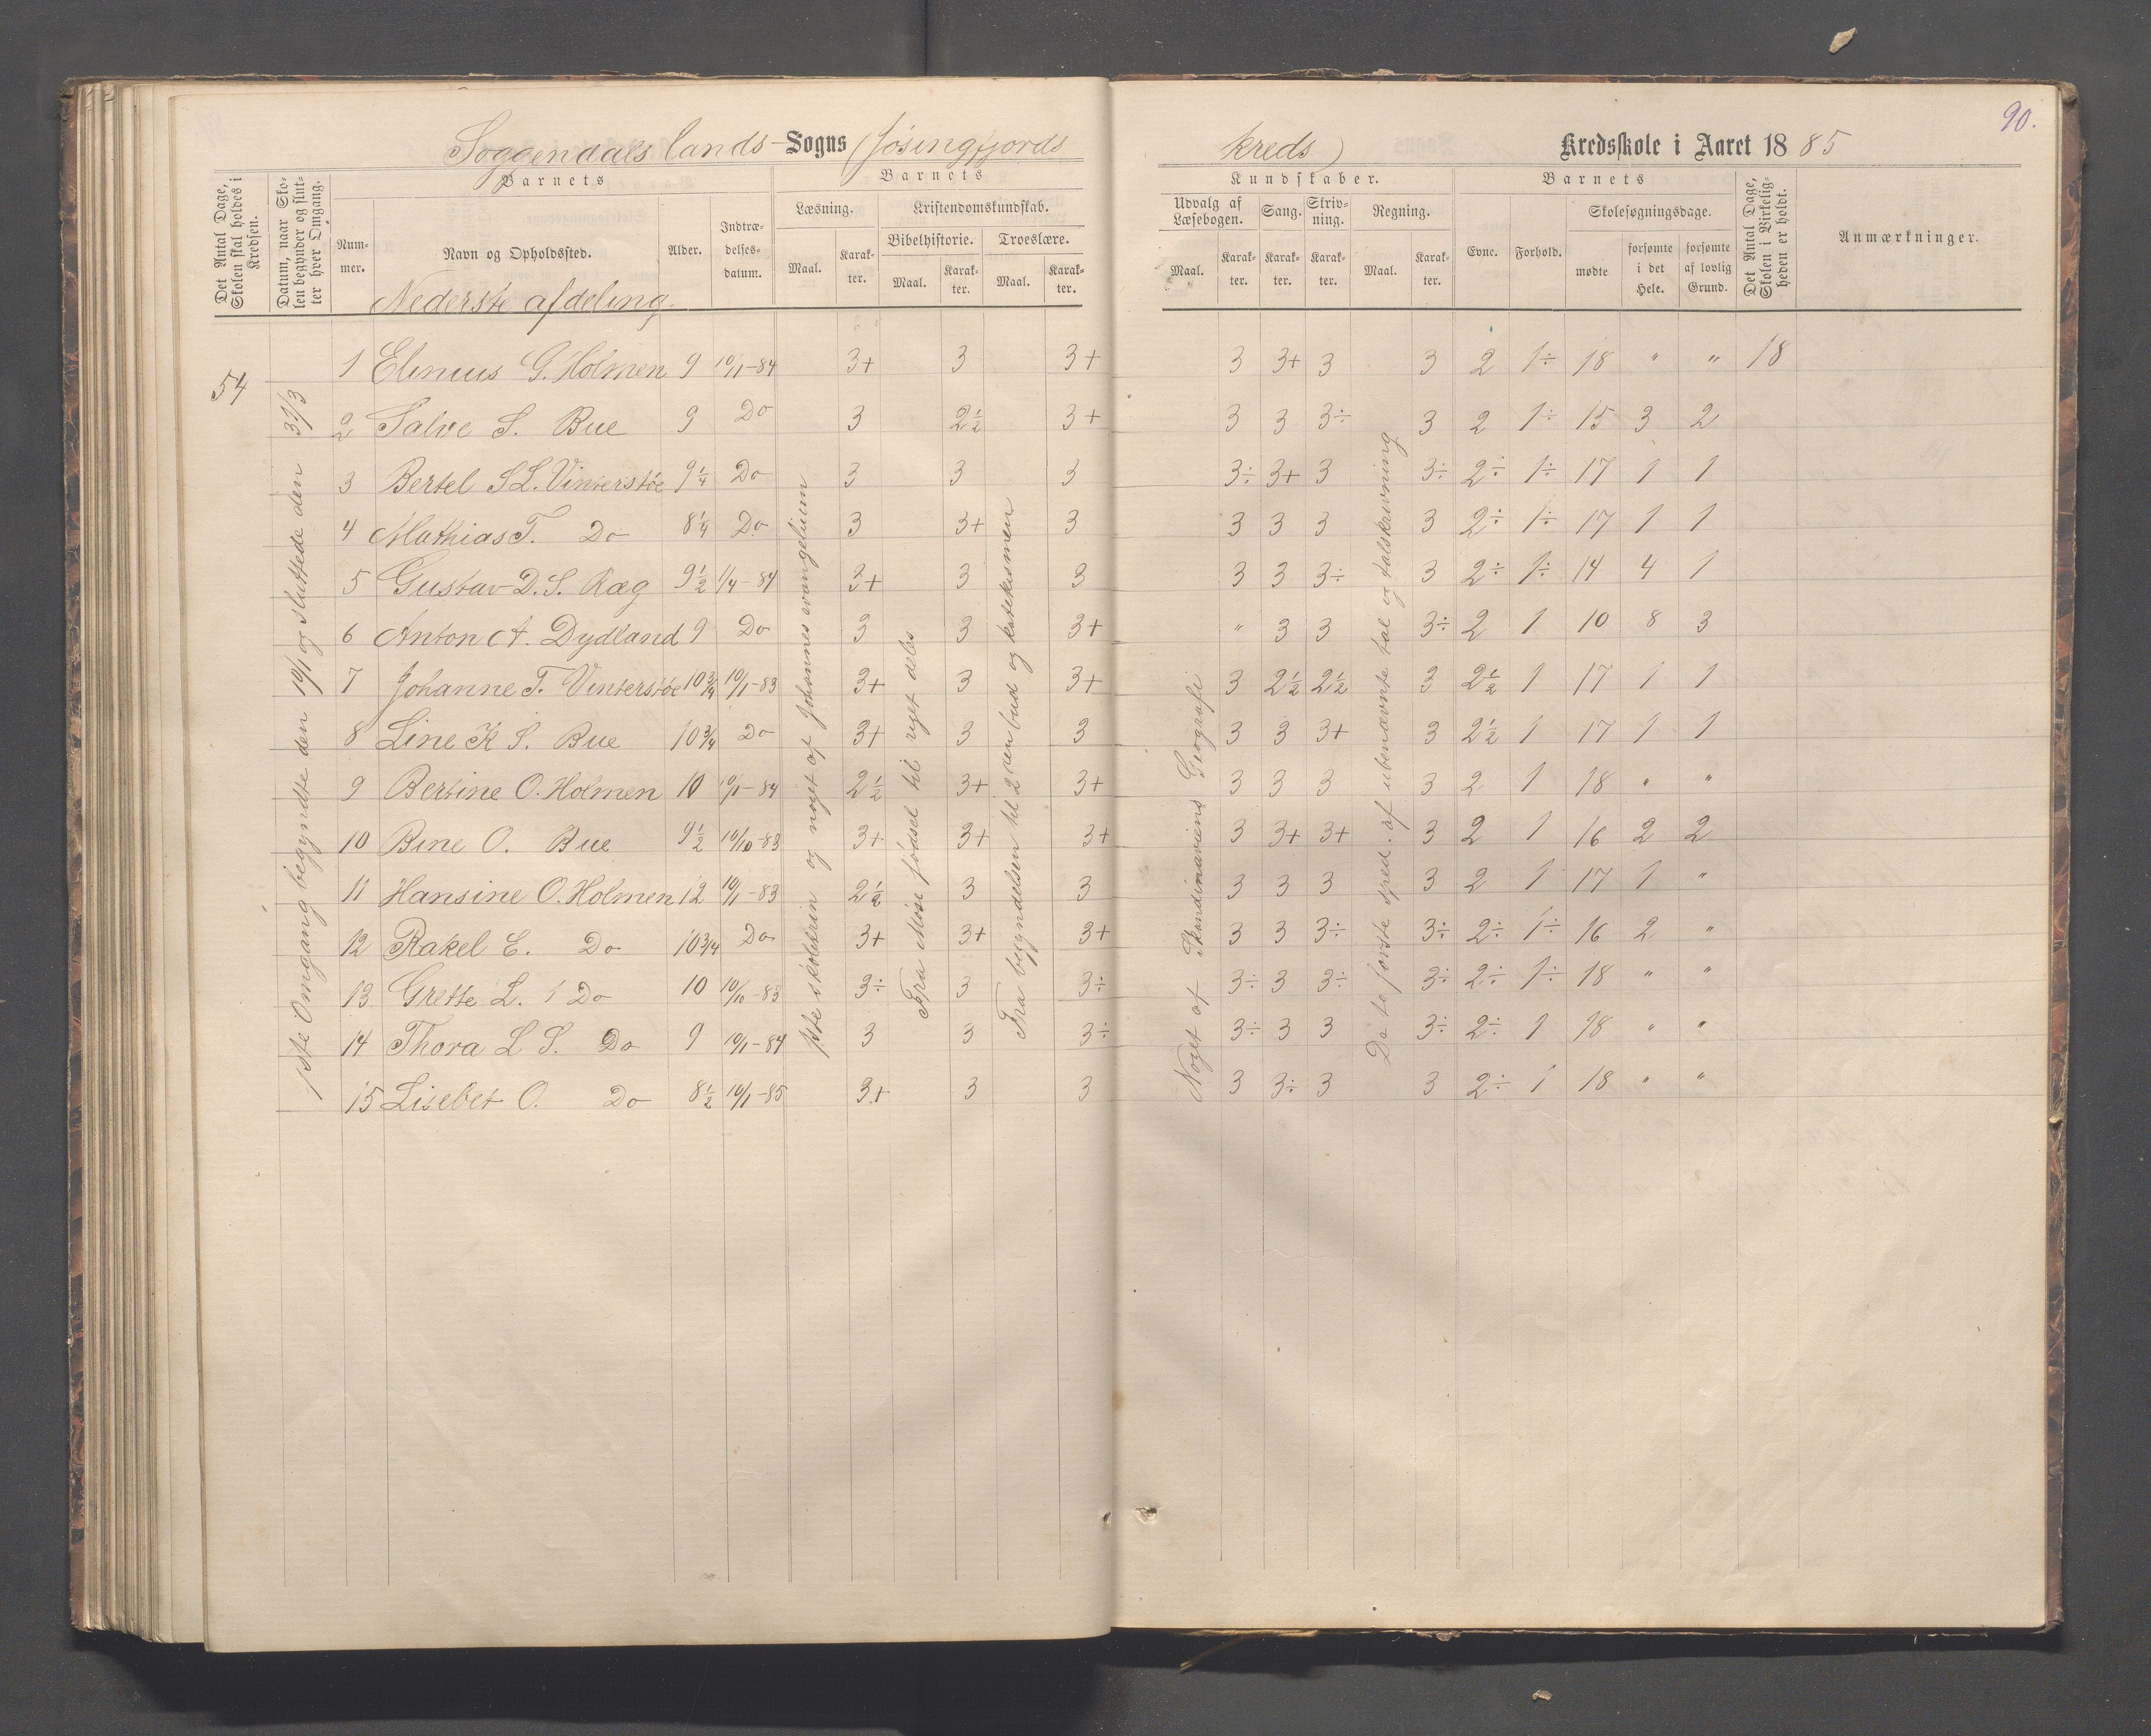 90.
Soggendals lands Sogns (Jøsingfjords kreds) Kredsskole i Aaret 1885
Det Antal Dage, Skolen skal holdes i Kredsen.
Datum, naar Skolen begynder og slutter hver Omgang.
Barnets
Nummer.
Navn og Opholdssted.
Alder.
Indtrædelsesdatum.
Barnets
Læsning.
Maal.
Karakter.
Kristendomskundskab.
Bibelhistorie.
Maal.
Karakter.
Troeslære.
Maal.
Karakter.
Kundskaber.
Udvalg af Læsebogen.
Maal.
Karakter.
Sang.
Karakter.
Skrivning.
Karakter.
Regning.
Maal.
Karakter.
Barnets
Evne.
Forhold.
Skolesøgningsdage.
mødte
forsømte i det Hele.
forsømte af lovlig Grund.
Det Antal Dage, Skolen i Virkeligheden er holdt.
Anmærkninger.
Nederste afdeling.
54
1ste Omgang begyndte den 10/1 og sluttede den 31/3
1ste skoletrin og noget af Johannes evangelium
Fra Mose fødsel til riget deles
Fra begyndelsen til 2den bud og katekismen
Noget af Skandinaviens Geografi
De to første spred. af ubenævnte tal og talskrivning
1 Elinius G. Holmen 9 10/11-84 3+ 3 3+ 3 3+ 3 3 2 1÷ 18 " " 18
2 Salve S. Bue 9 Do 3 2½ 3+ 3 3 3÷ 3 2 1÷ 15 3 2
3 Bertel S L. Vinterstøe 9¼ Do 3 3 3 3÷ 3+ 3 3÷ 2÷ 1÷ 17 1 1
4 Mathias T. Do 8¼ Do 3 3+ 3 3 3 3 3 2÷ 1÷ 17 1 1
5 Gustav D. S. Ræg 9½ 1/4-84 3+ 3 3 3 3 3÷ 3 2÷ 1÷ 14 4 1
6 Anton A. Dydland 9 Do 3 3 3+ " 3 3 3÷ 2 1 10 8 3
7 Johanne T. Vinterstøe 10¾ 10/1-83 3+ 3 3+ 3 2½ 2½ 3 2½ 1 17 1 1
8 Line K S. Bue 10¾ Do 3+ 3 3 3 3 3+ 3 2½ 1 17 1 1
9 Bertine O. Holmen 10 10/1-84 2½ 3+ 3+ 3 3 3 3 2 1 18 " "
10 Bine O. Bue 9½ 10/10-83 3+ 3+ 3+ 3 3+ 3+ 3 2 1 16 2 2
11 Hansine O. Holmen 12 10/1-83 2½ 3 3 3 3 3 3 2 1 17 1 "
12 Rakel E. Do 10¾ Do 3+ 3+ 3+ 3 3 3÷ 3÷ 2÷ 1÷ 16 2 "
13 Grette L. 1 Do 10 10/10-83 3÷ 3 3÷ 3÷ 3 3÷ 3÷ 2÷ 1÷ 18 " "
14 Thora L S. Do 9 10/1-84 3 3 3÷ 3÷ 3 3 3÷ 2÷ 1 18 " "
15 Lisebet O. Do 8½ 10/1-85 3+ 3 3 3 3÷ 3 3 2÷ 1 18 " "